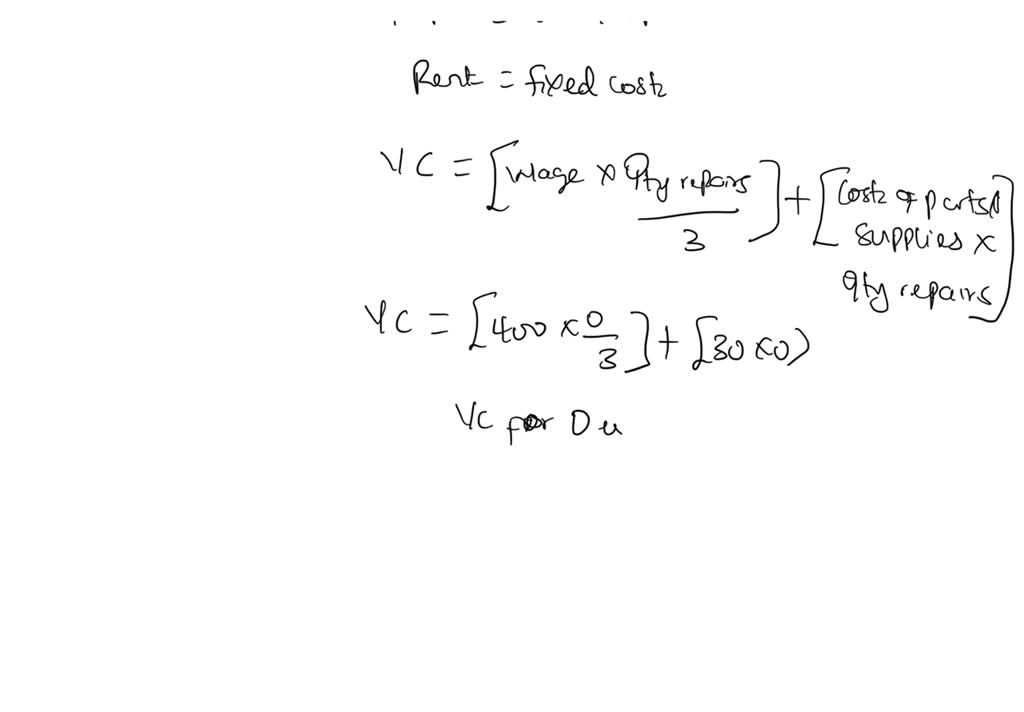 Rent = fixed cost
VC = [Wage × Qty repairs / 3] + [Cost of parts & supplies × qty repairs]
VC = [400 × 0/3] + [30 × 0)
VC for 0 u